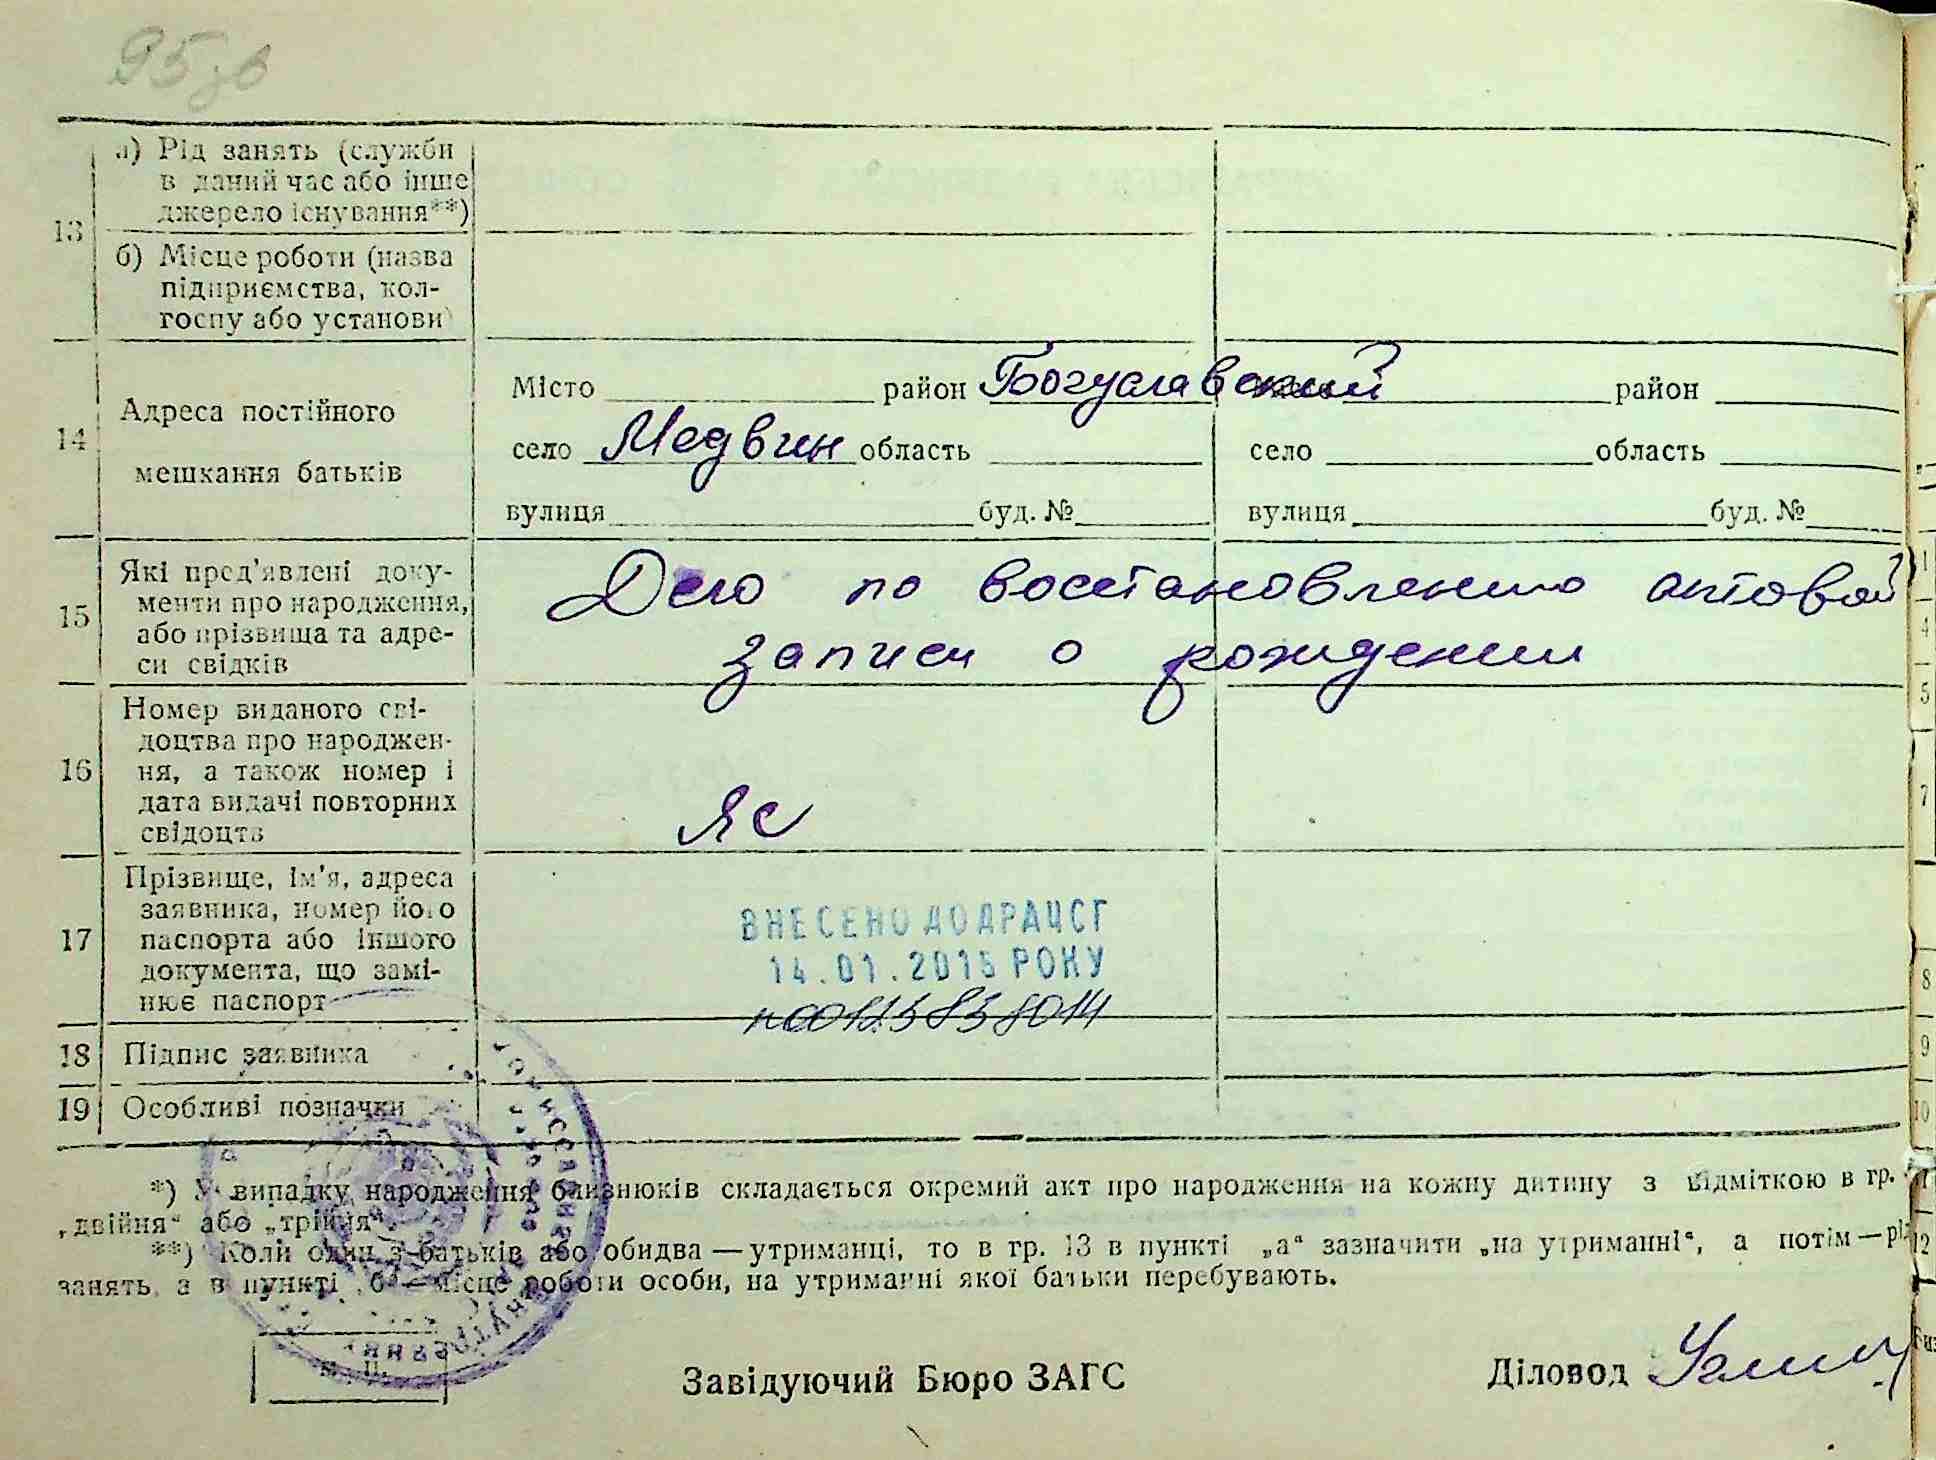 95 зв
13 а) Рід занять (служби
в даний час або інше
джерело існування**)
б) Місце роботи (назва
підприємства, кол-
госпу або установи)
14 Адреса постійного
мешкання батьків
Місто район Богуславский район
село Медвин область село область
вулиця буд. № вулиця буд. №
15 Які пред'явлені доку-
менти про народження,
або прізвища та адре-
си свідків
Дело по восстановлению актовой
записи о рождении
16 Номер виданого сві-
доцтва про народжен-
ня, а також номер і
дата видачі повторних
свідоцтв
17 Прізвище, ім'я, адреса
заявника, номер його
паспорта або іншого
документа, що замі-
нює паспорт
ВНЕСЕНО ДО ДРАЦСГ
14.01.2015 РОКУ
18 Підпис заявника
19 Особливі позначки
*) У випадку народження близнюків складається окремий акт про народження на кожну дитину з відміткою в гр.
„двійня“ або „трійня“.
**) Коли один з батьків або обидва — утриманці, то в гр. 13 в пункті „а“ зазначити „на утриманні“, а потім — рід
занять, а в пункті „б“ — місце роботи особи, на утриманні якої батьки перебувають.
М. П.
Завідуючий Бюро ЗАГС Діловод